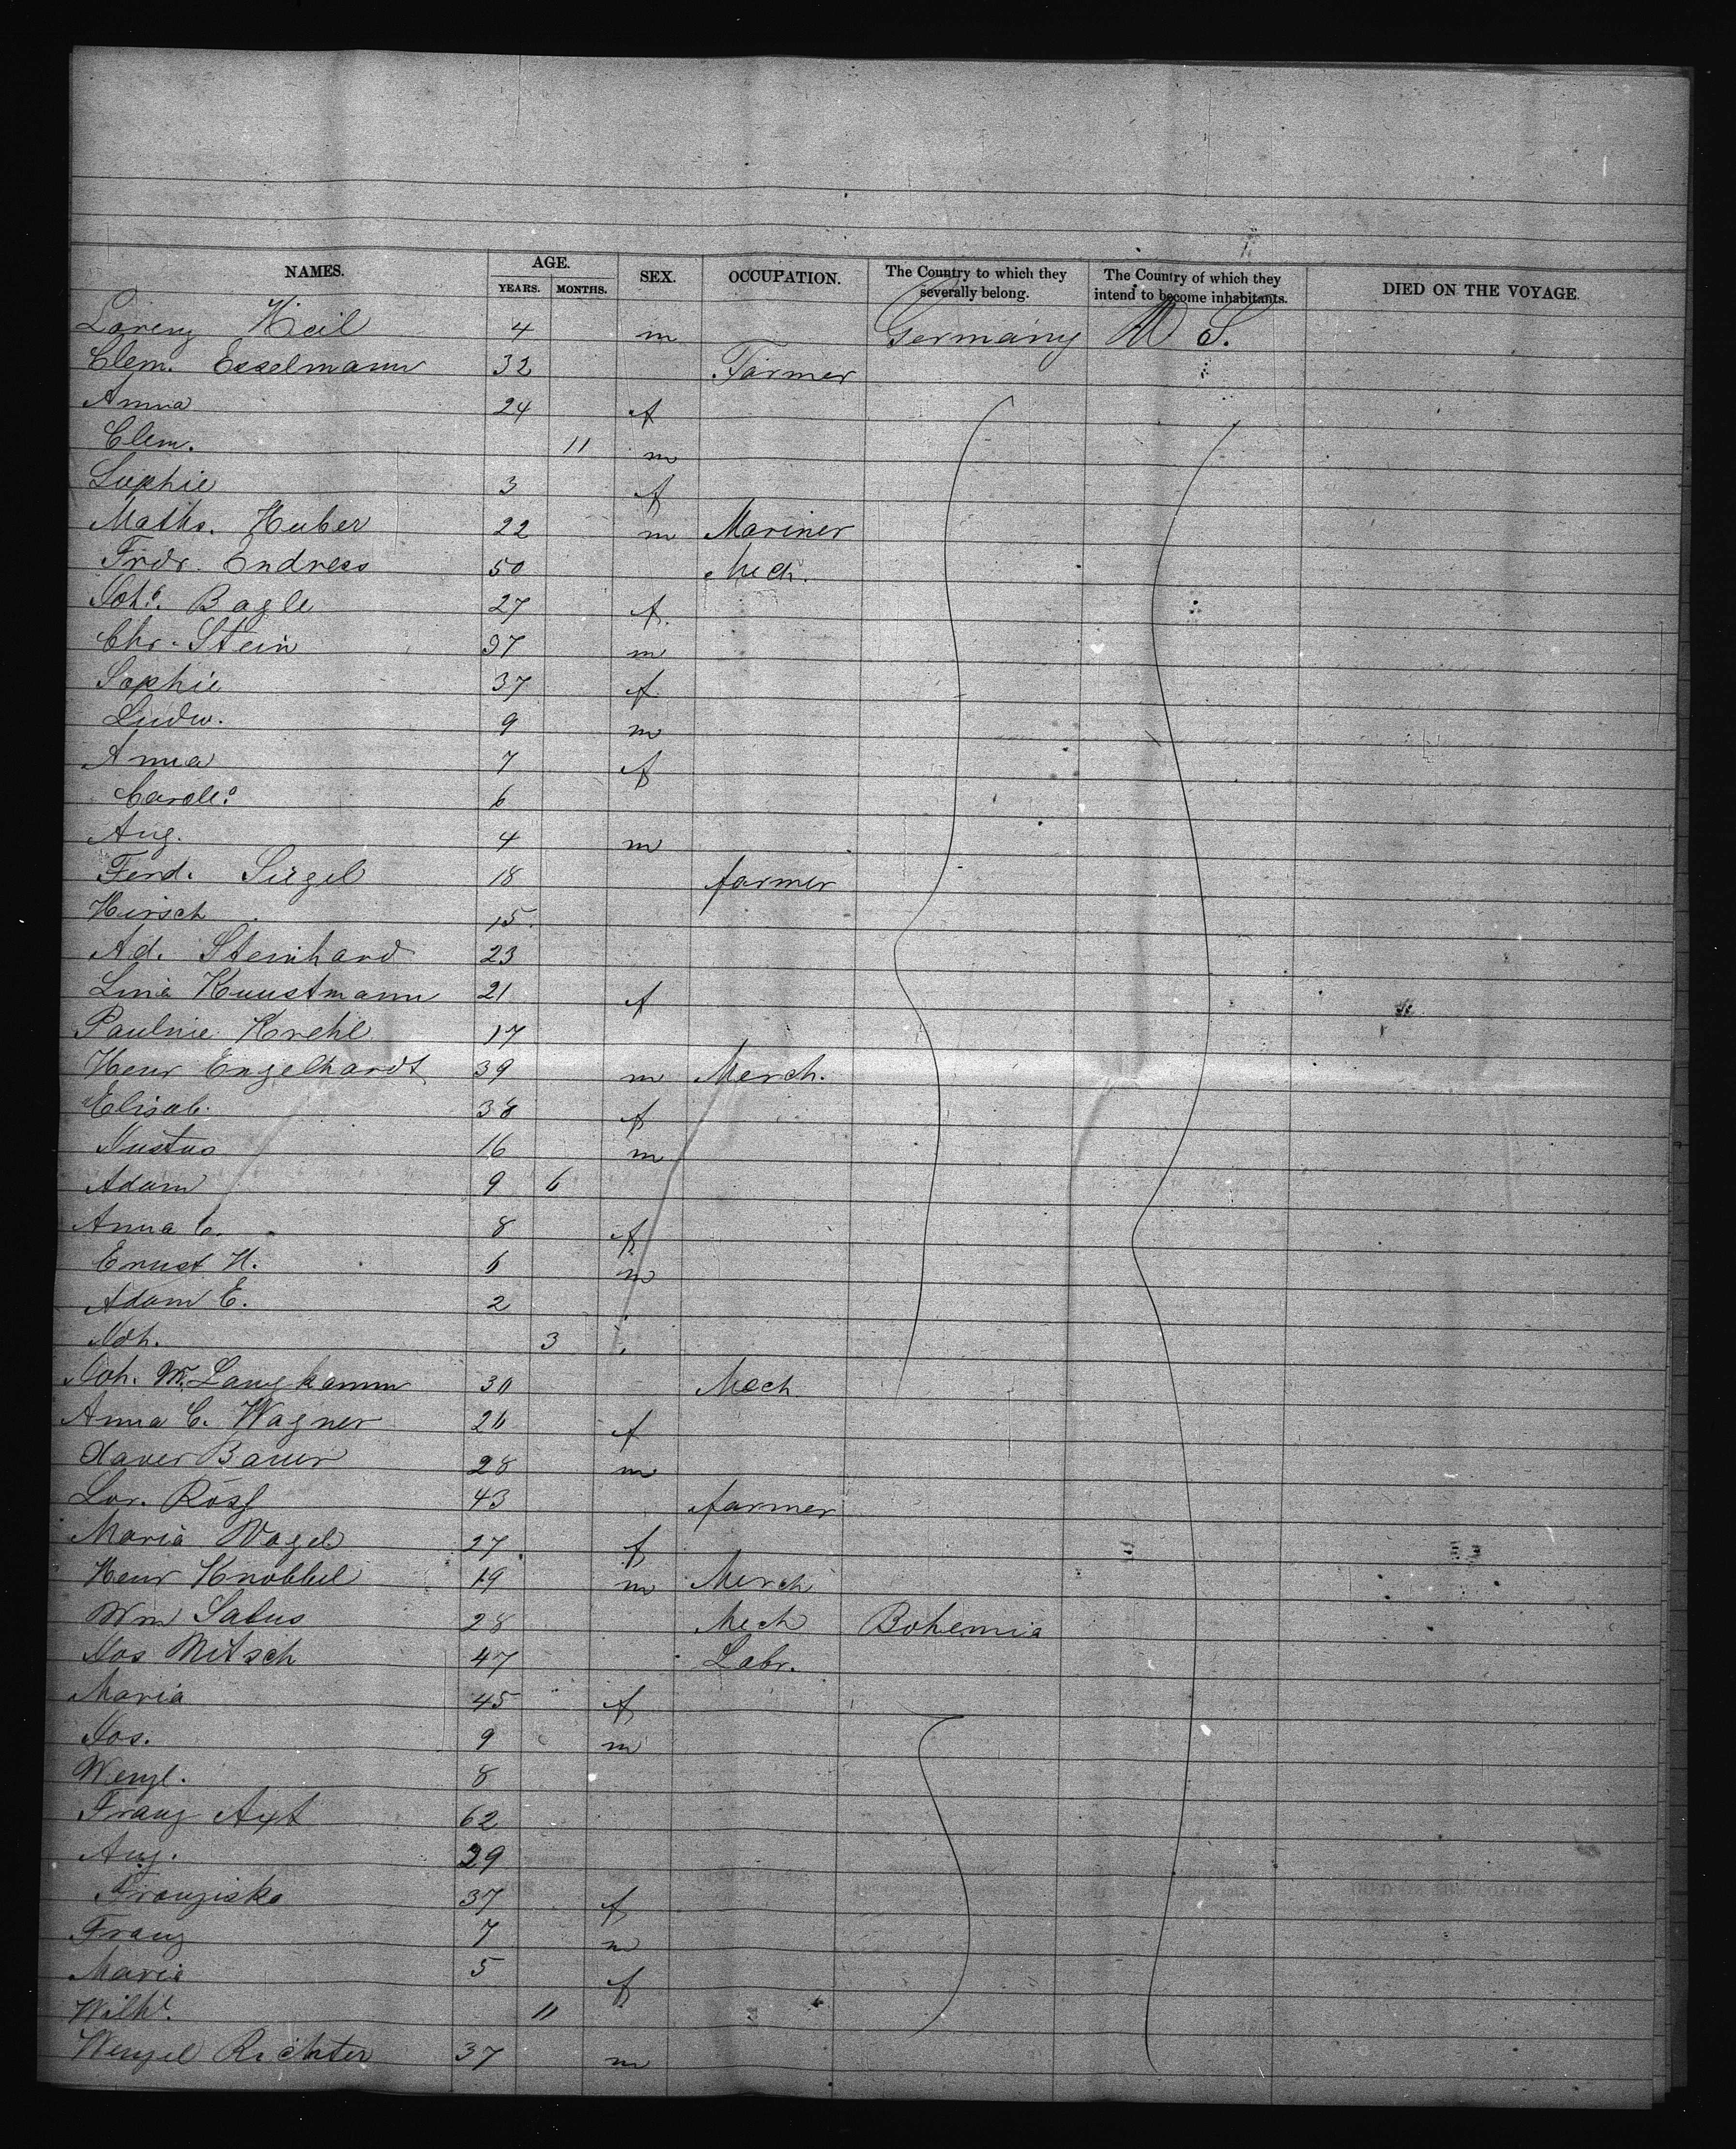 NAMES. AGE. SEX. OCCUPATION. The Country to which they severally belong. The Country of which they intend to become inhabitants. DIED ON THE VOYAGE.
YEARS. MONTHS.
Lorenz Keil 4 m Germany U S.
Clem. Esselmann 32 Farmer
Anna 24 f
Clem. 11 m
Sophie 3 f
Maths. Huber 22 m Mariner
Frdr. Endress 50 Mech.
Johe. Bagle 27 f.
Chr. Stein 37 m
Sophie 37 f
Ludw. 9 m
Anna 7 f
Carole. 6
Aug. 4 m
Ferd. Siegel 18 farmer
Hirsch 15
Ad. Steinhard 23
Lina Kunstmann 21 f
Pauline Krehl 17
Henr Engelhardt 39 m Merch.
Elisab. 38 f
Justus 16 m
Adam 9 6
Anna C. 8 f
Ernst H. 6 m
Adam E. 2
Joh. 3
Joh. M. Langkamm 30 Mech
Anna C. Wagner 26 f
Xaver Bauer 28 m
Lor. Rösf 43 farmer
Maria Vogel 27 f
Henr Knobbel 19 m Merch
Wm Salus 28 Mech Bohemia
Jos Nitsch 47 Labr.
Maria 45 f
Jos. 9 m
Wenzl. 8
Franz Axt 62
Aug. 29
Franziska 37 f
Franz 7 m
Maria 5 f
Wilhe. 11
Wenzel Richter 37 m